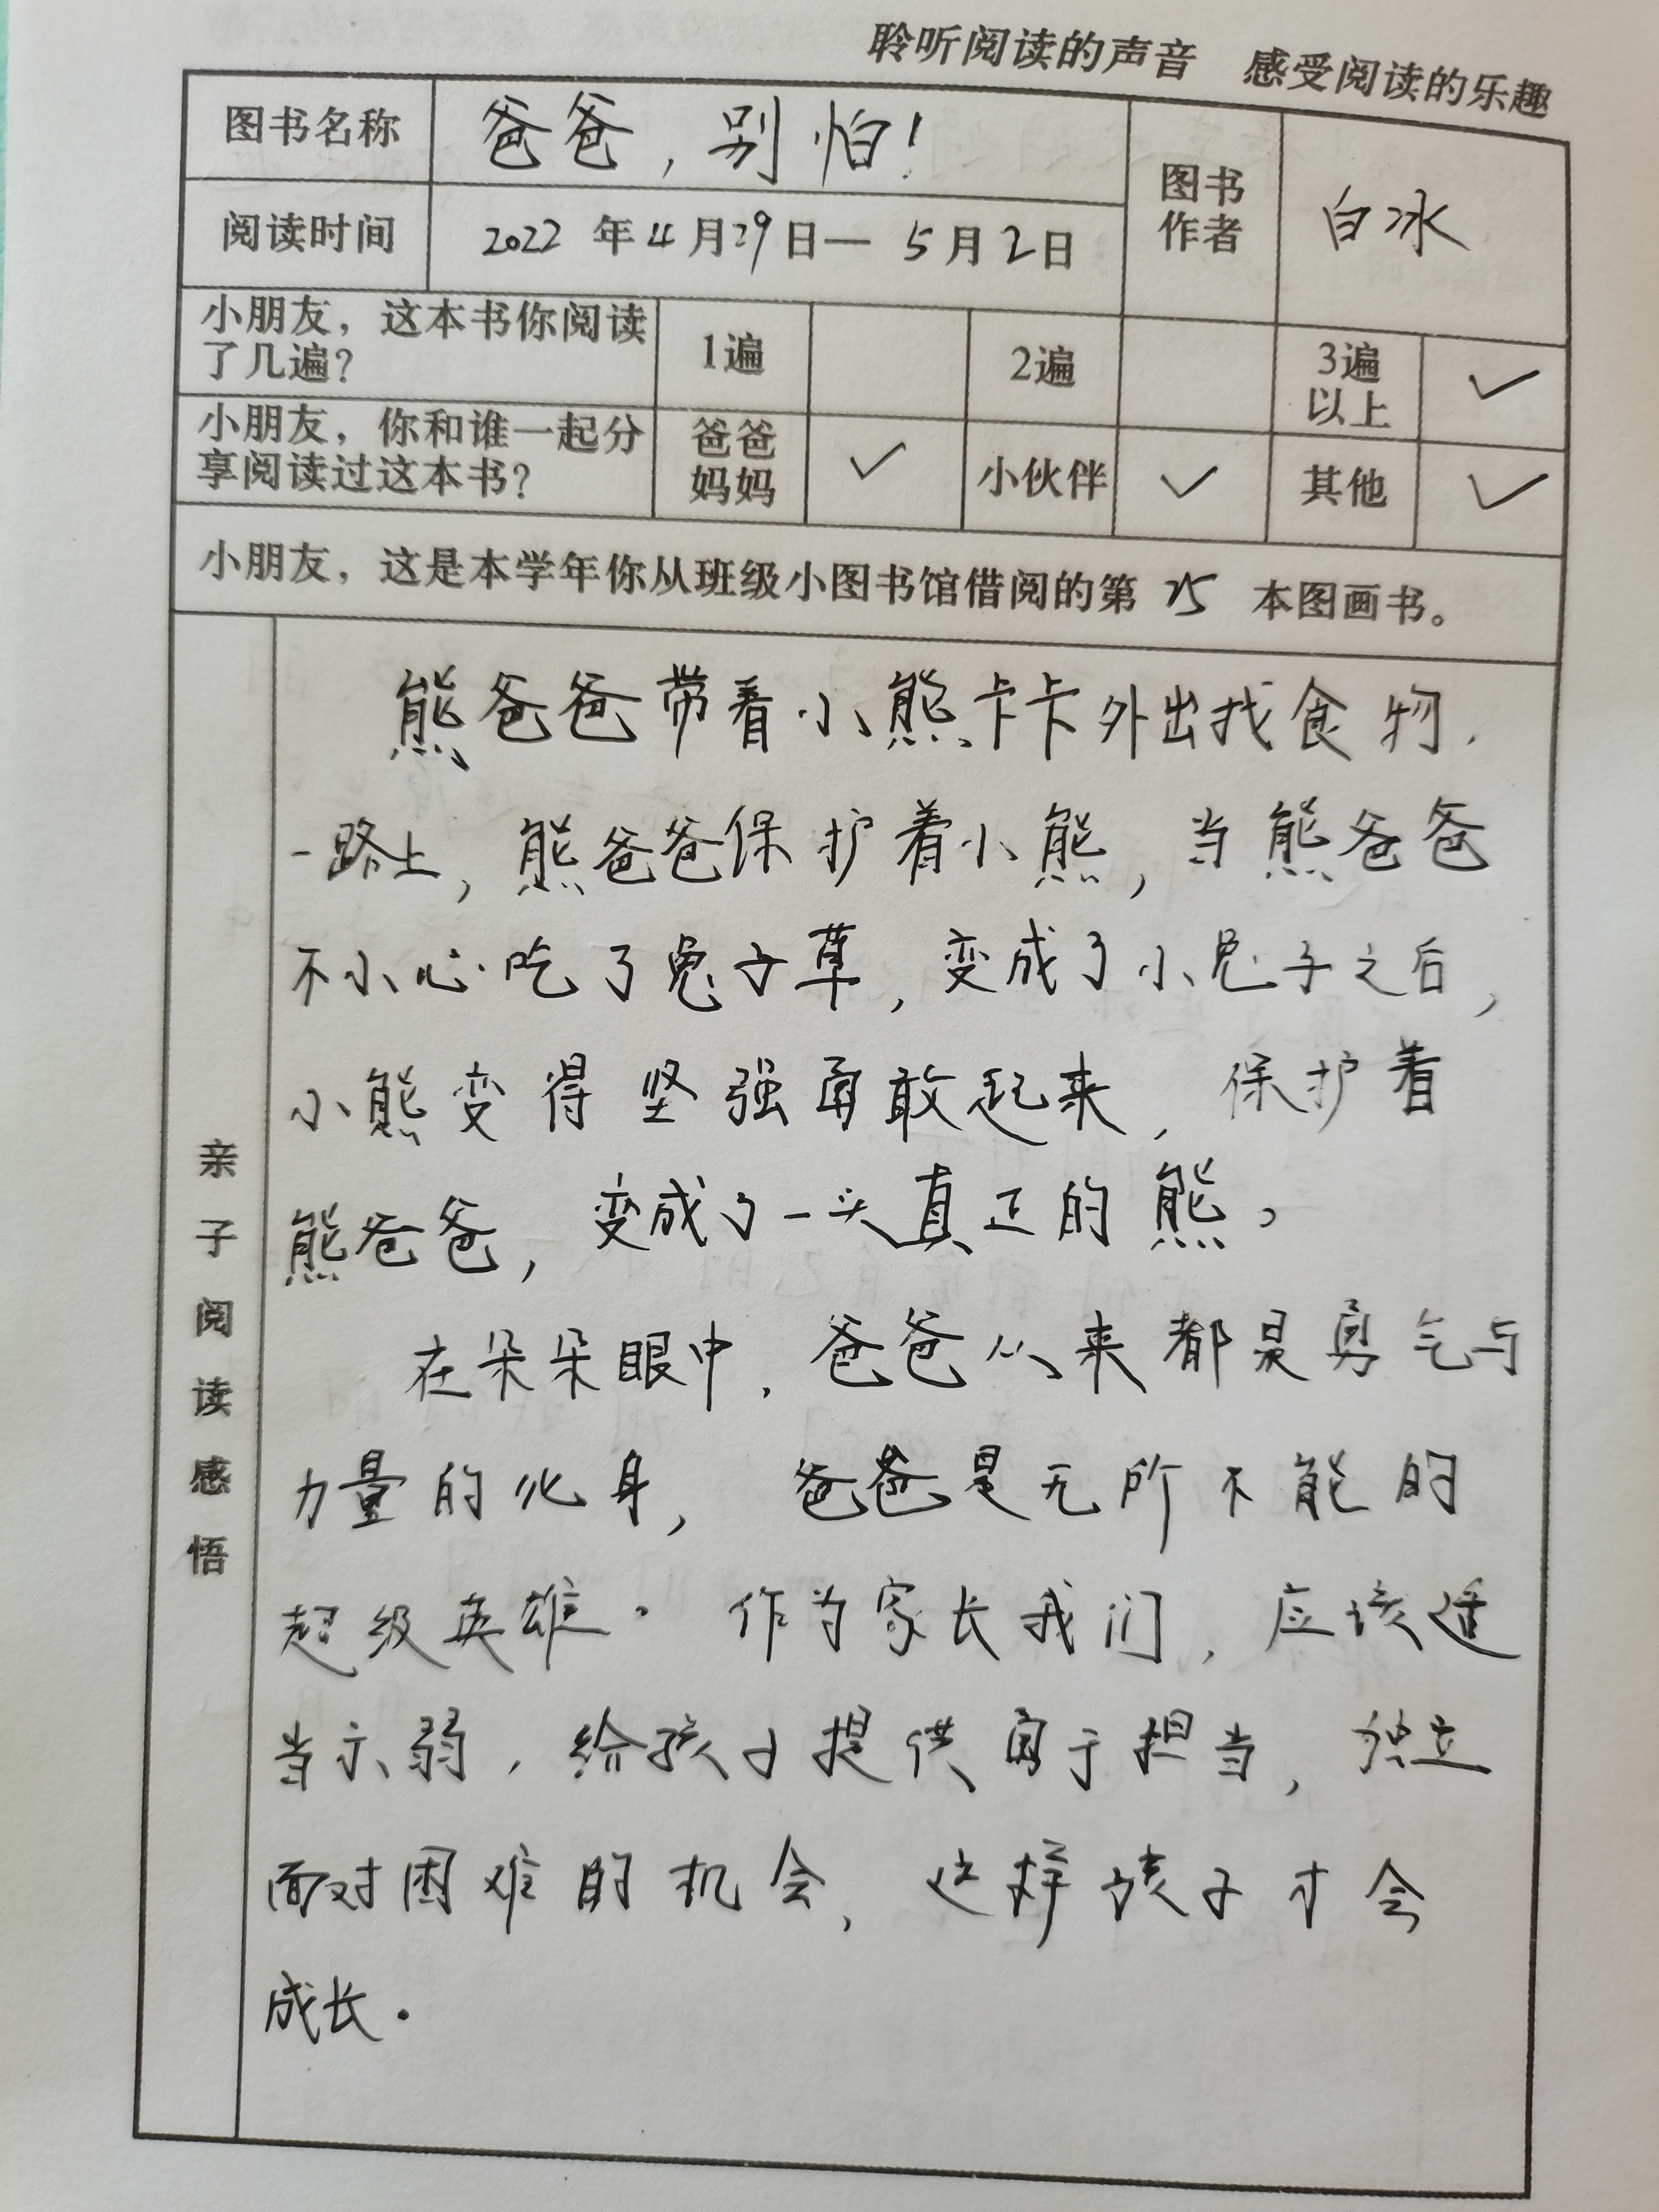 聆听阅读的声音 感受阅读的乐趣
图书名称
爸爸，别怕！
图书作者
白冰
阅读时间
2022 年 4 月 29 日— 5 月 2 日
小朋友，这本书你阅读
了几遍？
1遍
2遍
3遍
以上
✓
小朋友，你和谁一起分
享阅读过这本书？
爸爸
妈妈
✓
小伙伴
✓
其他
✓
小朋友，这是本学年你从班级小图书馆借阅的第 25 本图画书。
亲子阅读感悟
熊爸爸带着小熊卡卡外出找食物，
一路上，熊爸爸保护着小熊，当熊爸爸
不小心吃了兔子草，变成了小兔子之后，
小熊变得坚强勇敢起来，保护着
熊爸爸，变成了一头真正的熊。
在朵朵眼中，爸爸从来都是勇气与
力量的化身，爸爸是无所不能的
超级英雄。作为家长我们，应该适
当示弱，给孩子提供勇于担当，独立
面对困难的机会，这样孩子才会
成长。